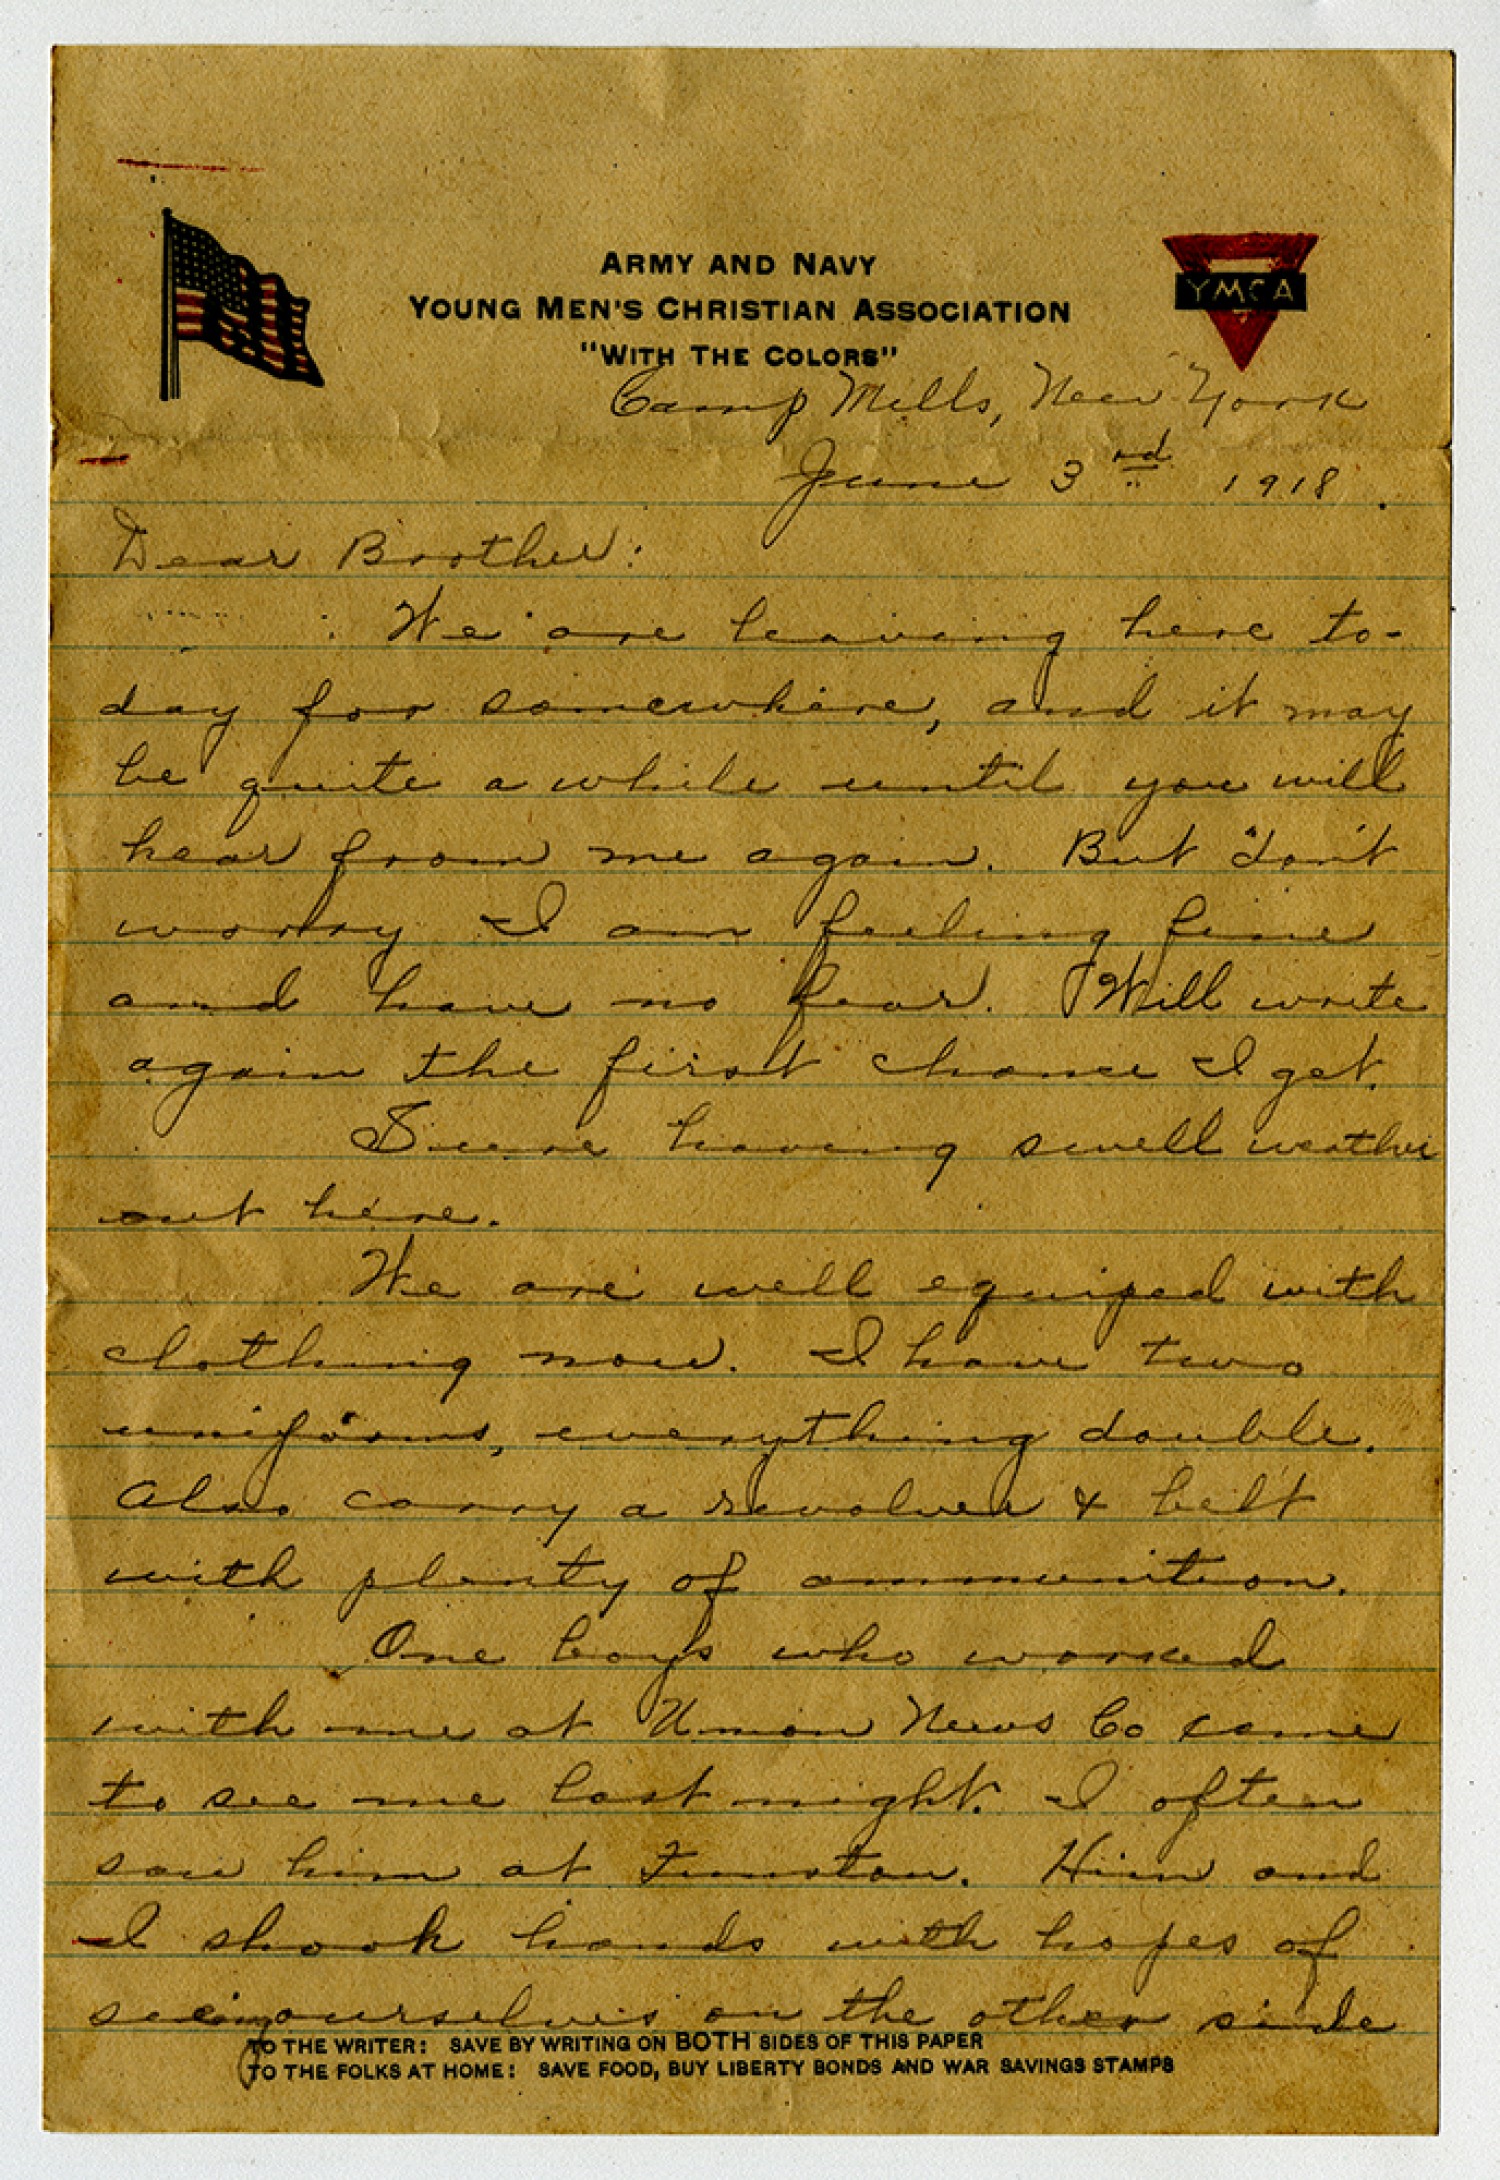 ARMY AND NAVY
YOUNG MEN'S CHRISTIAN ASSOCIATION
"WITH THE COLORS"
YMCA
Camp Mills, New York
June 3rd 1918.
Dear Brother:
We are leaving here to-
day for somewhere, and it may
be quite a while until you will
hear from me again. But don't
worry I am feeling fine
and have no fear. Will write
again the first chance I get.
Sure having swell weather
out here.
We are well equiped with
clothing now. I have two
uniforms, everything double.
Also carry a revolver & belt
with plenty of ammunition.
One boys who worked
with me at Union News Co came
to see me last night. I often
saw him at Funston. Him and
I shook hands with hopes of
seeing ourselves on the other side
TO THE WRITER: SAVE BY WRITING ON BOTH SIDES OF THIS PAPER
TO THE FOLKS AT HOME: SAVE FOOD, BUY LIBERTY BONDS AND WAR SAVINGS STAMPS